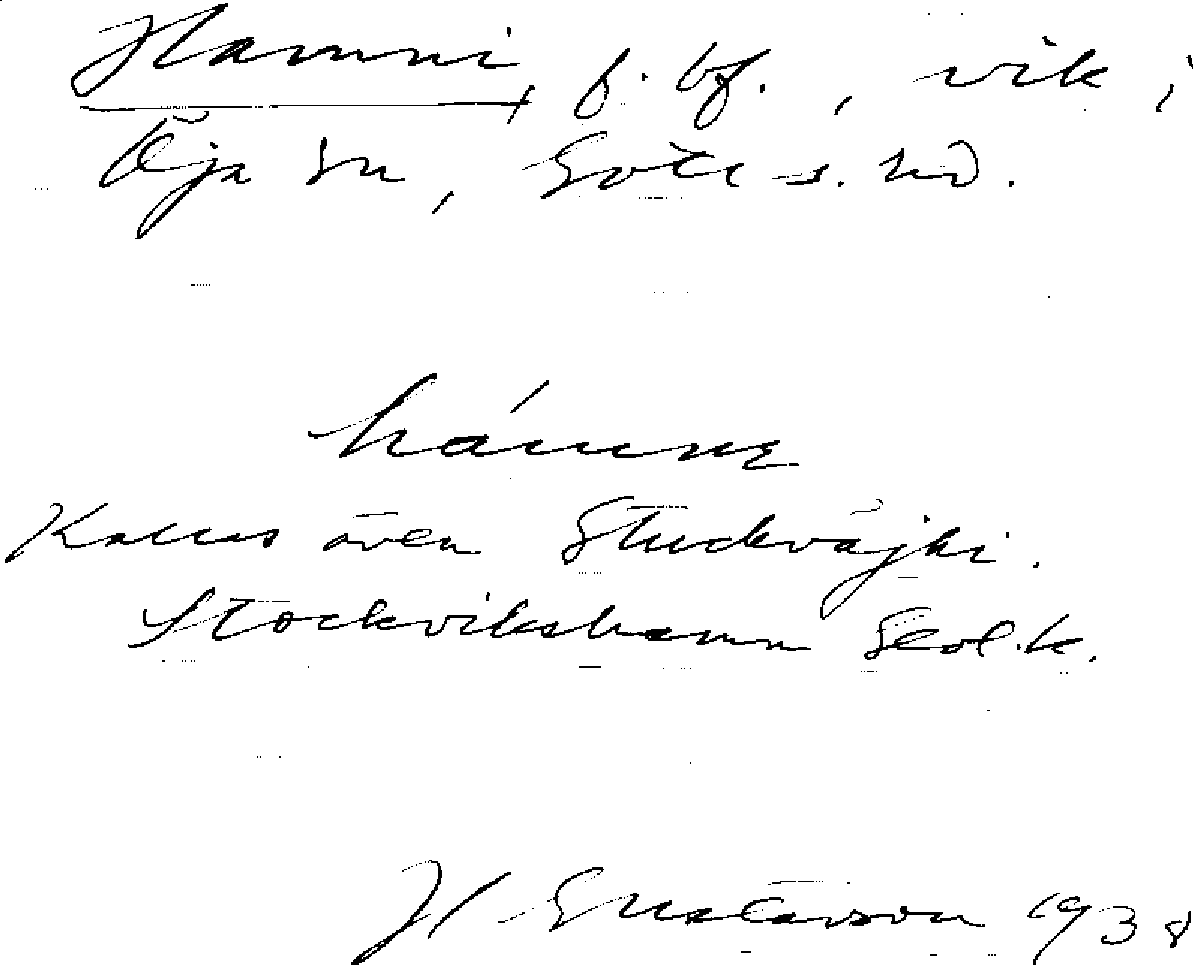 Hamni, f. bf., vik i
Öja sn, Gotl. s. hd.
hámnɛ
Kallas även Studkväjki.
Stockvikshamn Geol.k.
H Gustavson 1938